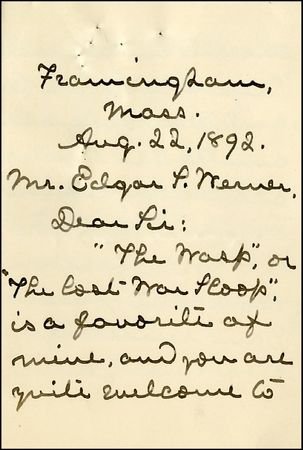 Framingham,
Mass.
Aug. 22, 1892.
Mr. Edgar S. Werner,
Dear Sir:
"The Wasp," or
"The Lost War Sloop",
is a favorite of
mine, and you are
quite welcome to